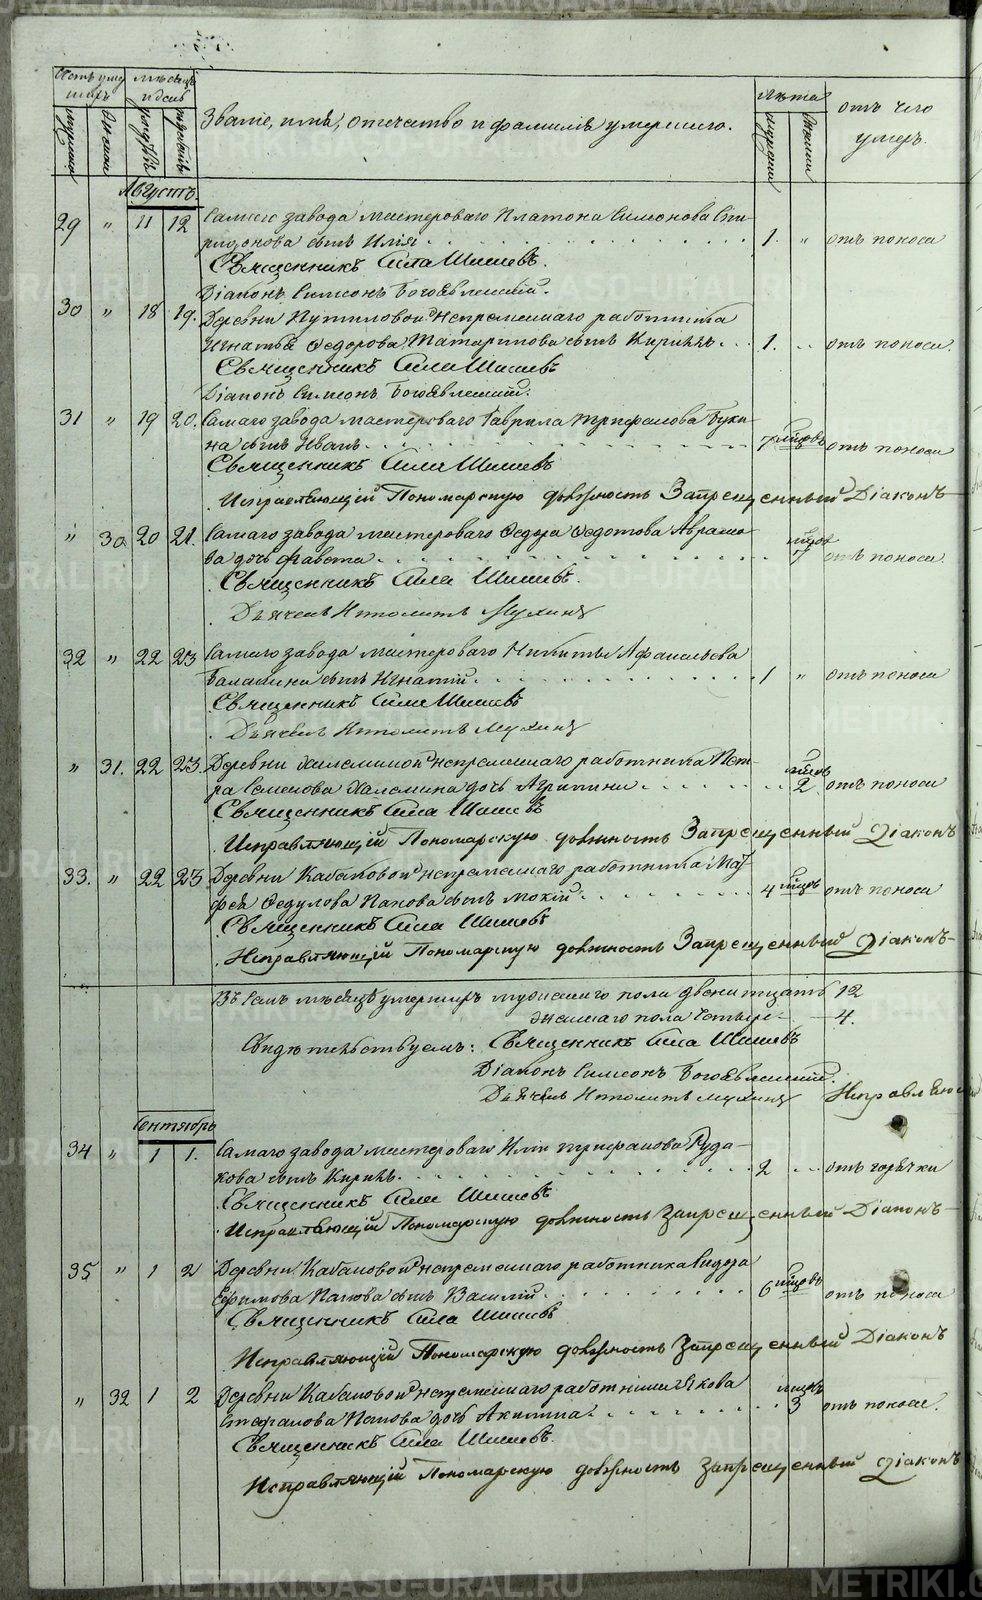 Счетъ умер
шихъ
мѣсяцъ
и день
Званіе, имя, отечество и фамилія умершаго.
лѣта
отъ чего
умеръ.
Августъ.
29 " 11 12 Самаго завода мастероваго Платона Симонова Спи-
ридонова сынъ Илія 1. " отъ поноса
Священникъ Сила Шишевъ.
Діаконъ Симеонъ Богоявленскій.
30 " 18 19. Деревни Путиловой непремѣннаго работника
Игнатья Федорова Татаринова сынъ Кирикъ 1. отъ поноса.
Священникъ Сила Шишевъ
Діаконъ Симеонъ Богоявленскій.
31 " 19 20. Самаго завода мастероваго Гаврила Трифанова Буки-
на сынъ Иванъ 7 мѣсяцовъ отъ поноса
Священникъ Сила Шишевъ
Исправляющій Пономарскую должность Запрещенный Діаконъ
" 30 20 21. Самаго завода мастероваго Федора Федотова Аврамо-
ва дочь 7 отъ поноса.
Священникъ Сила Шишевъ.
Дьячекъ Ипполитъ Мухинъ
32 " 22 23 Самаго завода мастероваго Никиты Афанасьева
Балашина сынъ Игнатій 1 " отъ поноса
Священникъ Сила Шишевъ
Дьячекъ Ипполитъ Мухинъ
" 31. 22 23. Деревни непремѣннаго работника Пет-
ра Семенова дочь 2 отъ поноса
Священникъ Сила Шишевъ
Исправляющій Пономарскую должность Запрещенный Діаконъ
33. " 22 23 Деревни Кабановой непремѣннаго работника Мат-
фея Федулова Панова сынъ Мокій 4 мѣсяцовъ отъ поноса
Священникъ Сила Шишевъ
Исправляющій Пономарскую должность Запрещенный Діаконъ
Въ семъ мѣсяцѣ умершихъ мужескаго пола двенатцать 12
женскаго пола четыре 4.
Свидѣтельствуемъ: Священникъ Сила Шишевъ
Діаконъ Симеонъ Богоявленскій.
Дьячекъ Ипполитъ Мухинъ
Сентябрь
34 " 1 1. Самаго завода мастероваго Ильи Трифанова Руда-
кова сынъ Кирикъ. 2 отъ горячки
Священникъ Сила Шишевъ
Исправляющій Пономарскую должность Запрещенный Діаконъ
35 " 1 2 Деревни Кабановой непремѣннаго работника
Ефимова Панова сынъ Василій 6 мѣсяцовъ отъ поноса
Священникъ Сила Шишевъ
Исправляющій Пономарскую должность Запрещенный Діаконъ
" 32 1 2 Деревни Кабановой непремѣннаго работника Якова
Стефанова Панова дочь Акилина 3 отъ поноса.
Священникъ Сила Шишевъ.
Исправляющій Пономарскую должность Запрещенный Діаконъ
METRIKI.GASO-URAL.RU